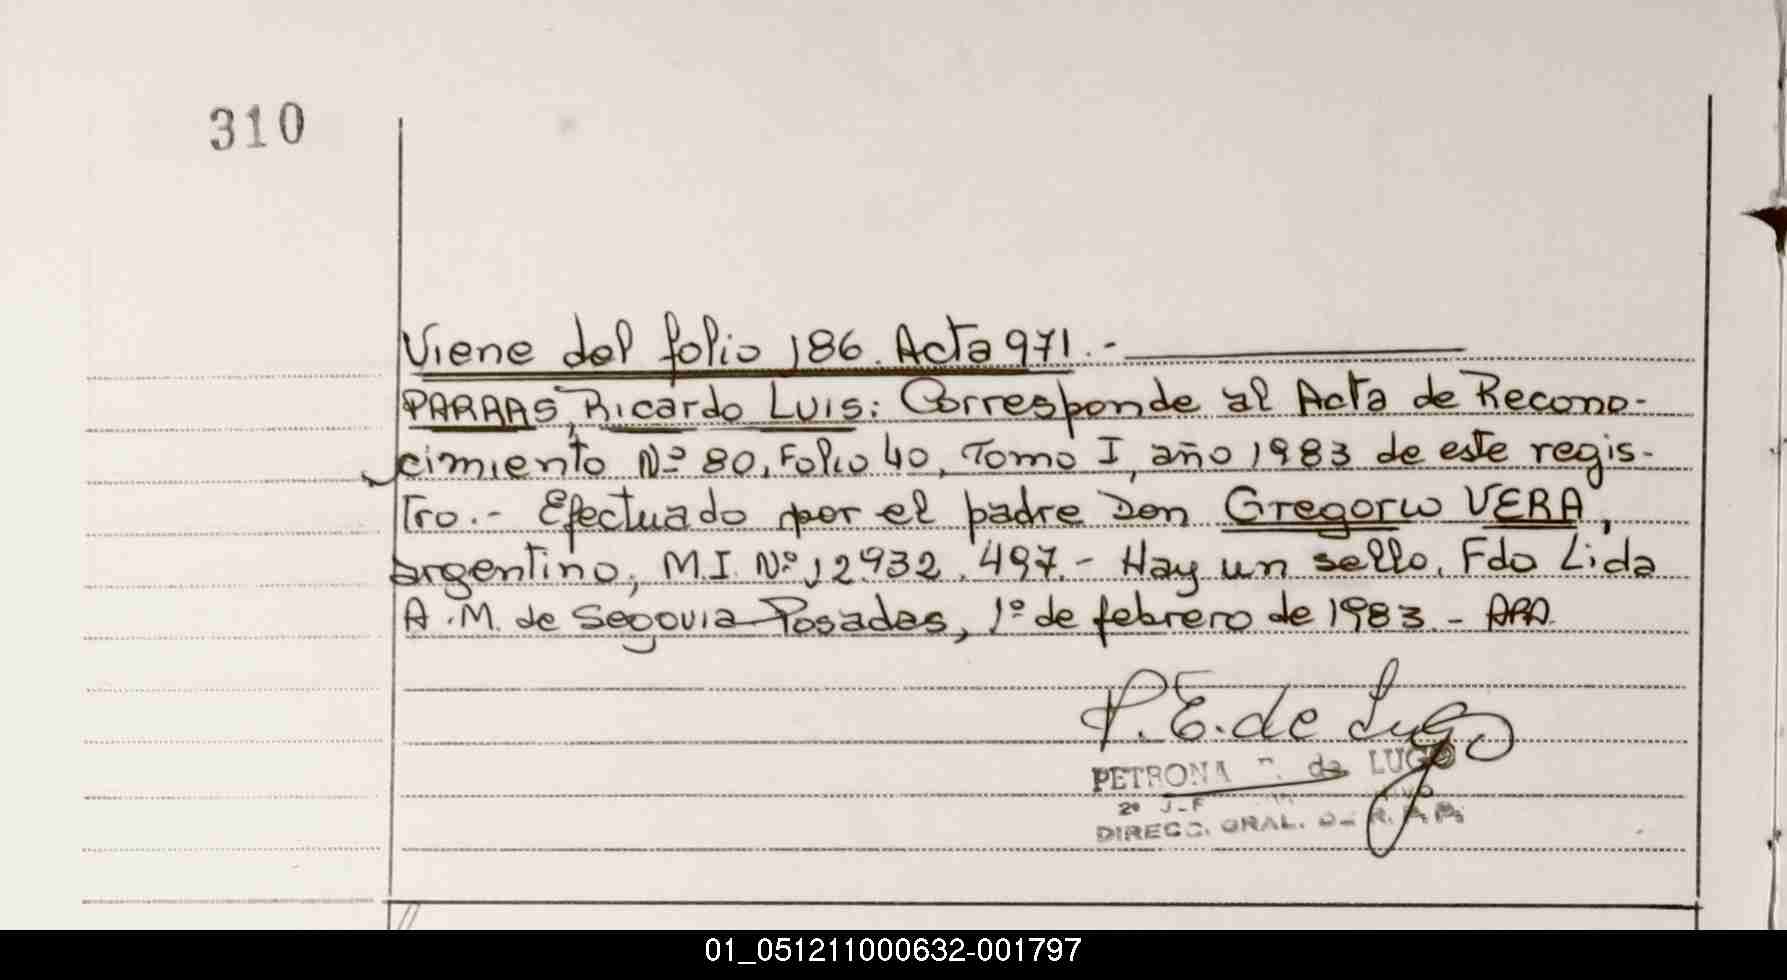 310
Viene del folio 186. Acta 971.-
PARRAS, Ricardo Luis: Corresponde al Acta de Recono-
cimiento Nº 80, Folio 40, Tomo I, año 1983 de este regis-
tro.- Efectuado por el padre Don Gregorio VERA,
argentino, M.I. Nº 12.932.497.- Hay un sello. Fdo Lida
A.M. de Segovia Posadas, 1º de febrero de 1983.-
P.E. de Lugo
PETRONA de LUGO
2º
DIRECC. GRAL. R.
01_051211000632-001797